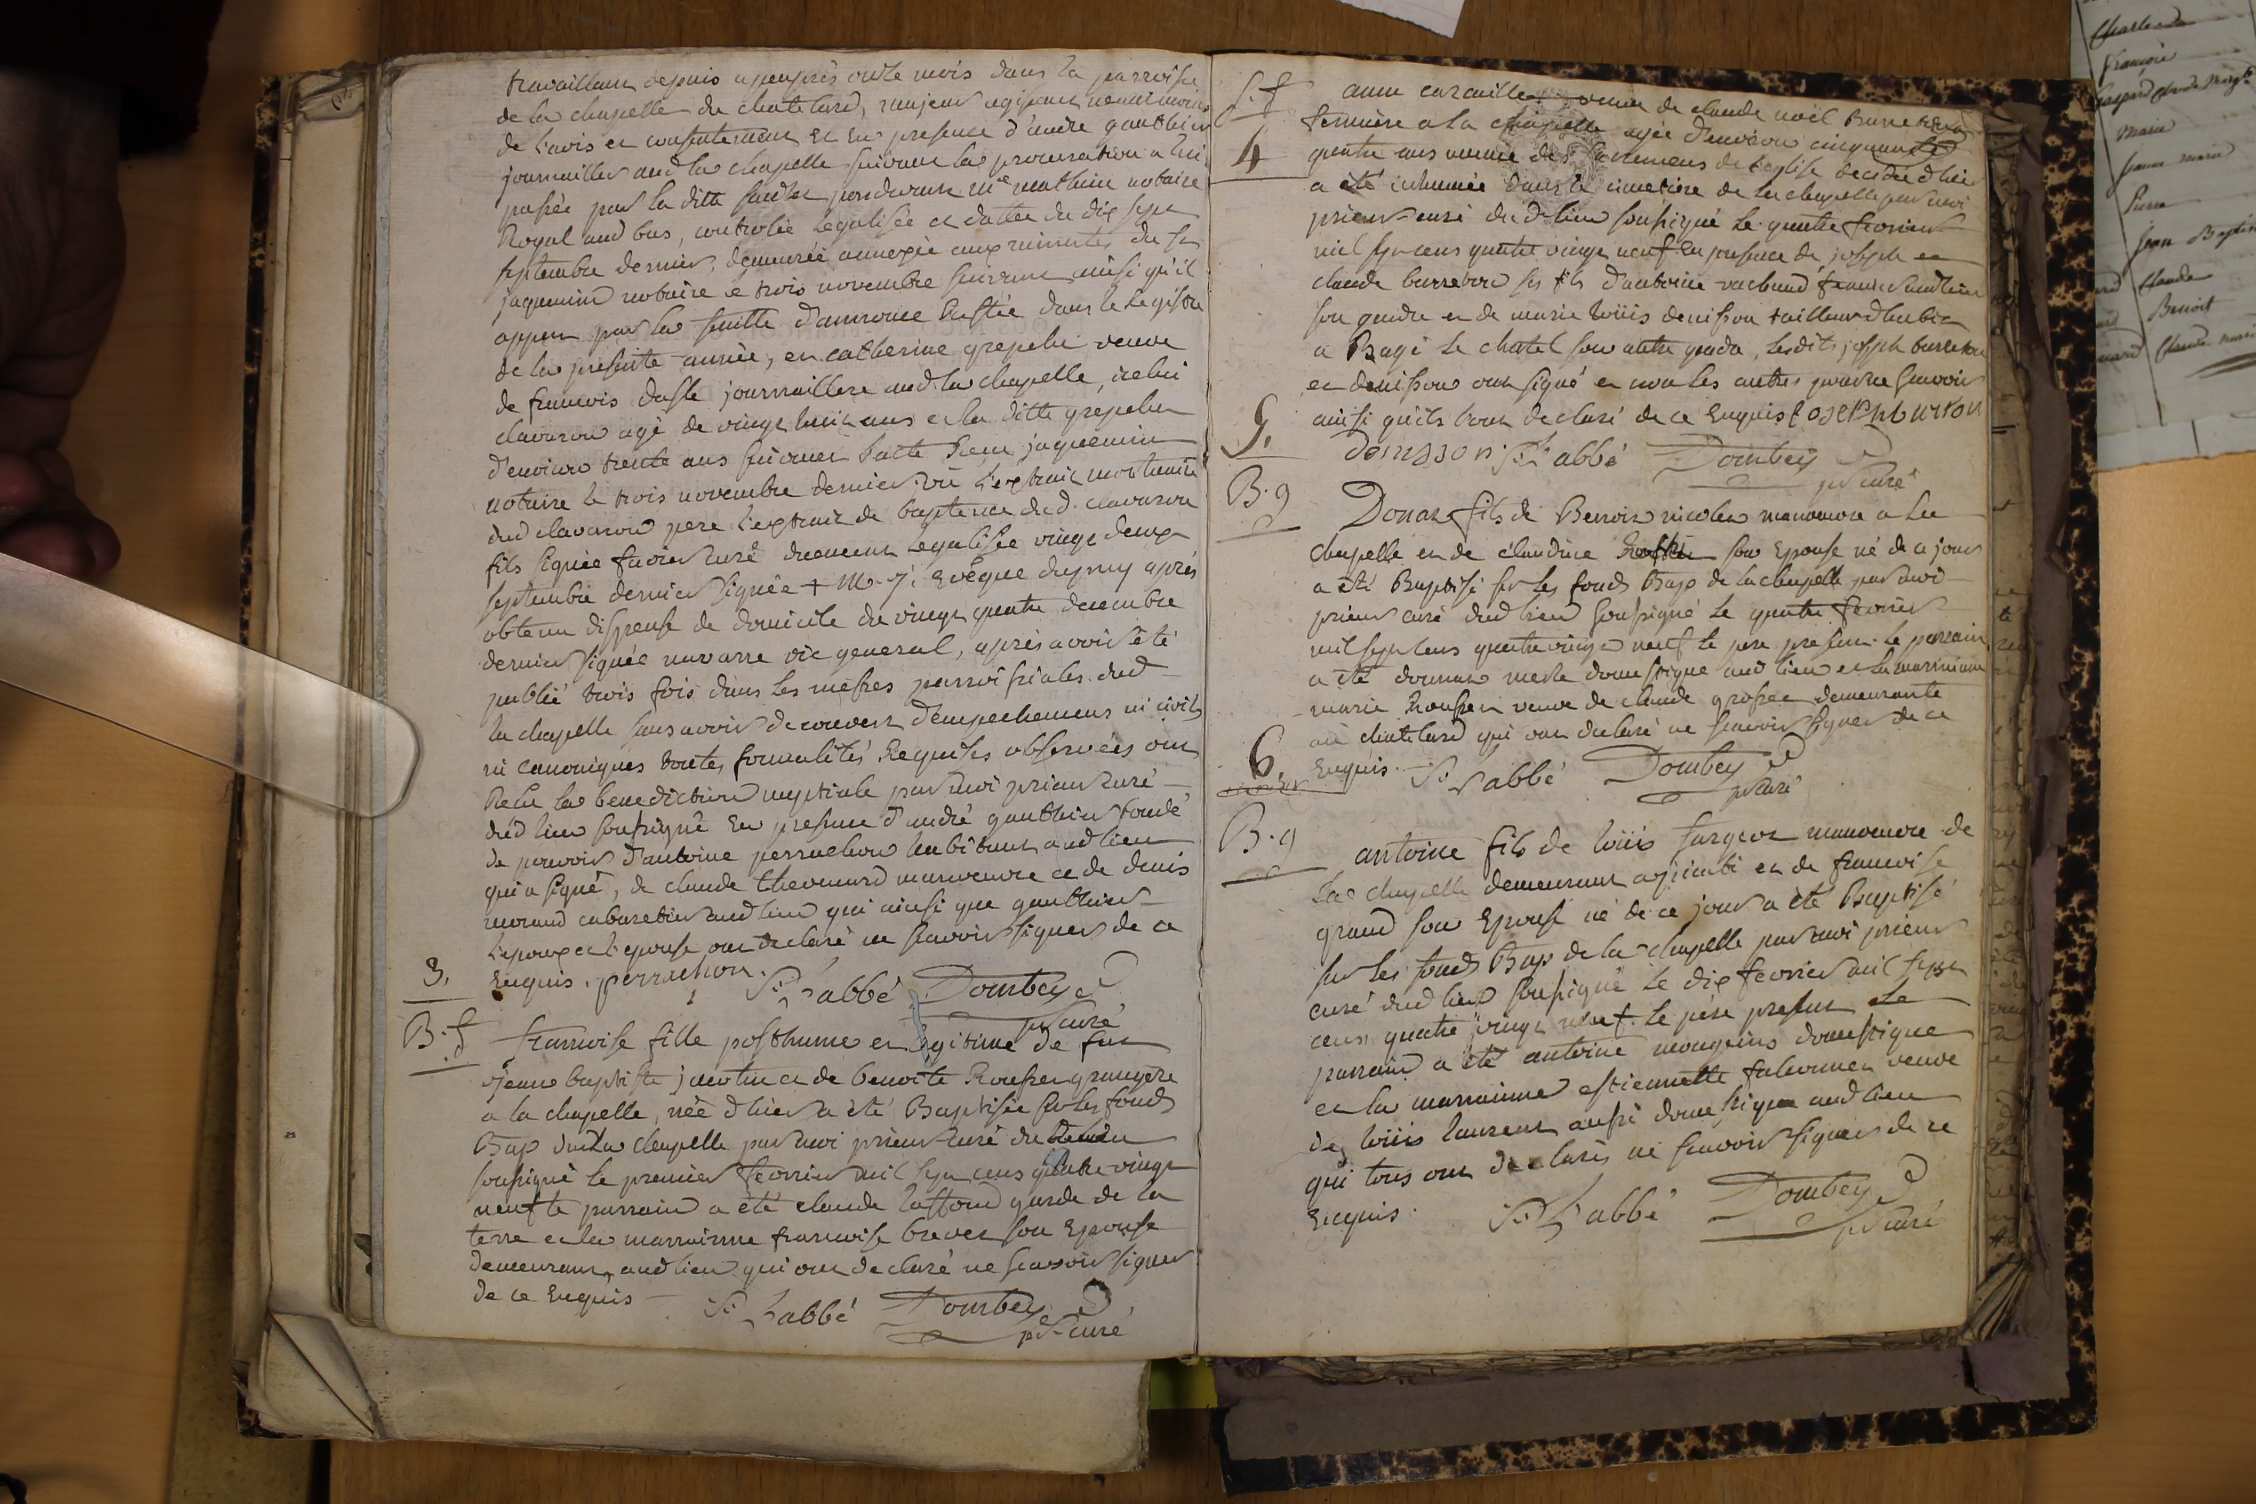 travaillant depuis apeuprès onze mois dans la parroisse
de la chapelle du chatelard, majeur agissant neanmoins
de l'avis et consentement et en presence d'andré gauthier
journaillier aud la chapelle suivant la procuration a lui
passée par la ditte pardevant me mathieu notaire
Royal aud bas, controlée legalisée et dattée du dix sept
septembre dernier, demeurée annexée aux minutes du sr
jaquemin notaire le trois novembre suivant ainsi qu'il
appert par la feuille d'annonce dans le Registre
de la presente année, et catherine grepelu veuve
de francois dasle journaillere aud. la chapelle, icelui
clavaron agé de vingt huit ans et la ditte grepelu
d'environ trente ans suivant l'acte Reçu jaquemin
notaire le trois novembre dernier. vû l'extrait mortuaire
dud clavaron pere l'extrait de baptême dud. clavaron
fils signée favier curé duement legalisée vingt deux
septembre dernier signée + M. j. Evêque dupuy après
obtenu dispense de domicile du vingt quatre decembre
dernier signée navarre vic general, après avoir été
publié trois fois dans les messes parroissiales dud
la chapelle sans avoir decouvert d'empechemens ni civils
ni canoniques toutes formalités Requises observées ont
Reçu la benediction nuptiale par moi prieur curé
dud lieu soussigné en presence d'andré gauthier fondé
de pouvoir d'antoine perrachon habitant aud lieu
qui a signé, de claude thevenard manoeuvre et de denis
morand cabaretier aud lieu qui ainsi que gauthier
l'epoux et l'epouse ont declaré ne scavoir signer de ce
Enquis. perrachon. St Labbé Dombey
pr curé
3.
B. f
francoise fille posthume et legitime de feu
jean baptiste et de benoite Rousset grangere
a la chapelle, née d'hier a été Baptisée sur les fonds
Bap dud la chapelle par moi prieur curé dud lieu
soussigné le premier fevrier mil sept cens quatre vingt
neuf le parrain a été claude laffond garde de la
terre et la marrainne francoise brevet son Epouse
demeurant aud lieu qui ont declaré ne scavoir signer
de ce Enquis
St Labbé Dombey
pr curé
S. f
4
anne veuve de claude noël Burreton
fermière a la chapelle agée d'environ cinquante
quatre ans munie des sacremens de l'eglise decedée d'hier
a été inhumée dans le cimetière de la chapelle par moi
prieur curé dud lieu soussigné le quatre fevrier
mil sept cens quatre vingt neuf en presence de joseph et
claude burreton ses fils d'antoine vachand fermier aud lieu
son gendre et de marie loüis denisson tailleur d'habit
a Bagé le chatel son autre gendre, lesdits joseph burreton
et denisson ont signé et non les autres pour ne scavoir
ainsi qu'ils l'ont declaré de ce Enquis joseph burton
denisson St Labbé Dombey
pr curé
5.
B. g
Donat fils de Benoit nicolet manoeuvre a la
chapelle et de claudine son Epouse né de ce jour
a été Baptisé sur les fonds Bap de la chapelle par moi
prieur curé dud lieu soussigné le quatre fevrier
mil sept cens quatre vingt neuf le pere present. le parrain
a été donnat merle domestique aud lieu et la marrainne
marie Rousset veuve de claude grosset demeurante
au chatelard qui ont declaré ne scavoir signer de ce
Enquis. St Labbé Dombey
pr curé
6.
B. g
antoine fils de loüis fargeot manoeuvre de
la chapelle demeurant et de francoise
grand son Epouse né de ce jour a été Baptisé
sur les fonds Bap de la chapelle par moi prieur
curé dud lieu soussigné le dix fevrier mil sept
cens quatre vingt neuf. le père present le
parrain a été antoine domestique
et la marrainne estiennette veuve
de loüis laurent aussi domestique aud lieu
qui tous ont declarés ne scavoir signer de ce
Enquis. St Labbé Dombey
pr curé
Charles
françois
Marie
Jeanne marie
Pierre
Jean Baptiste
Claude
Benoit
Claude marie